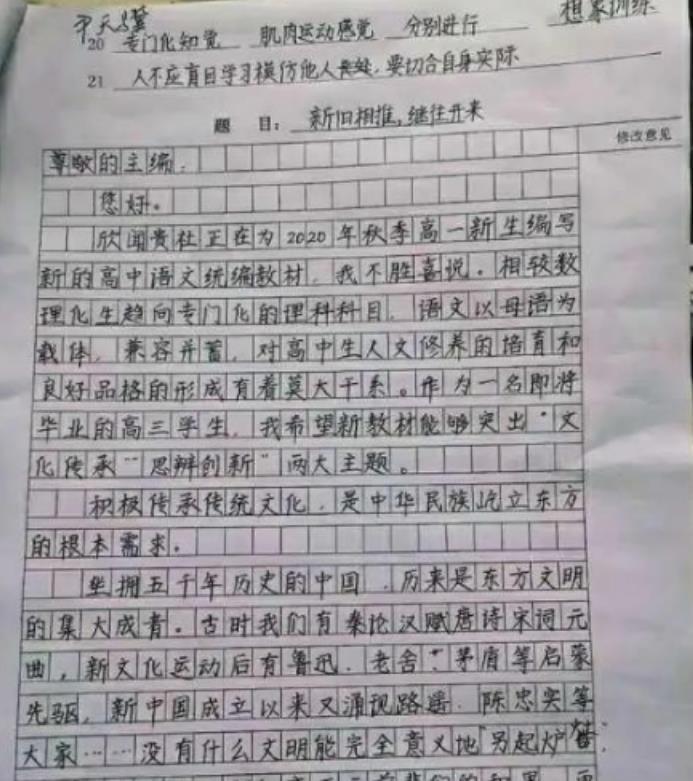 20 专门化知觉 肌肉运动感觉 分别进行 想象训练
21 人不应盲目学习模仿他人 要切合自身实际
题 目: 新旧相推,继往开来
修改意见
尊敬的主编:
您好。
欣闻贵社正在为2020年秋季高一新生编写
新的高中语文统编教材,我不胜喜悦。相较数
理化生趋向专门化的理科科目,语文以母语为
载体,兼容并蓄,对高中生人文修养的培育和
良好品格的形成有着莫大干系。作为一名即将
毕业的高三学生,我希望新教材能够突出“文
化传承”“思辨创新”两大主题。
积极传承传统文化,是中华民族屹立东方
的根本需求。
坐拥五千年历史的中国,历来是东方文明
的集大成者。古时我们有秦论汉赋唐诗宋词元
曲,新文化运动后有鲁迅、老舍、茅盾等启蒙
先驱,新中国成立以来又涌现路遥、陈忠实等
大家……没有什么文明能完全意义地“另起炉灶”